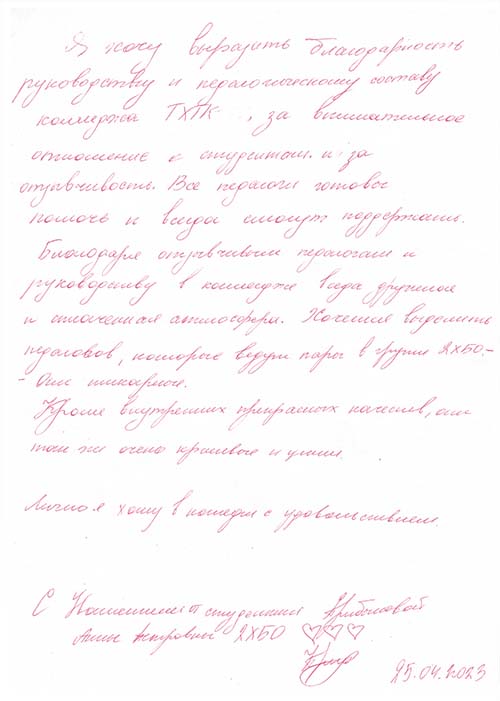 Я хочу выразить благодарность
руководству и педагогическому составу
колледжа ТХТК, за внимательное
отношение к студентам и за
отзывчивость. Все педагоги готовы
помочь и всегда смогут поддержать.
Благодаря отзывчивым педагогам и
руководству в колледже всегда дружная
и сплоченная атмосфера. Хочется выделить
педагогов, которые ведут пары в группе 2ХБО.-
- Они шикарные.
Кроме внутренних прекрасных качеств, они
так же очень красивые и умные.
Лично я хожу в колледж с удовольствием.
С студентки
Анны Петровны 2ХБО ♡♡♡
25.04.2023